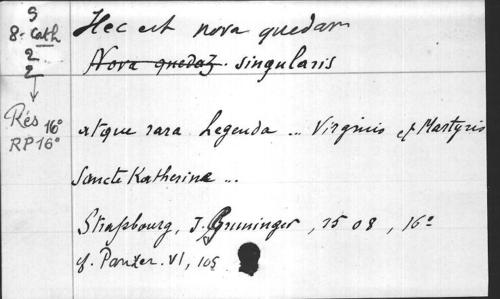 S
8= Cath
2
2
Rés 16°
RP 16°
Hec est nova quedam
Nova quedaz. singularis
atque rara Legenda ... Virginis et Martyris
Sancte Katherine ...
Strassbourg, J. Gruninger, 1508, 16°
cf. Panzer. VI, 105